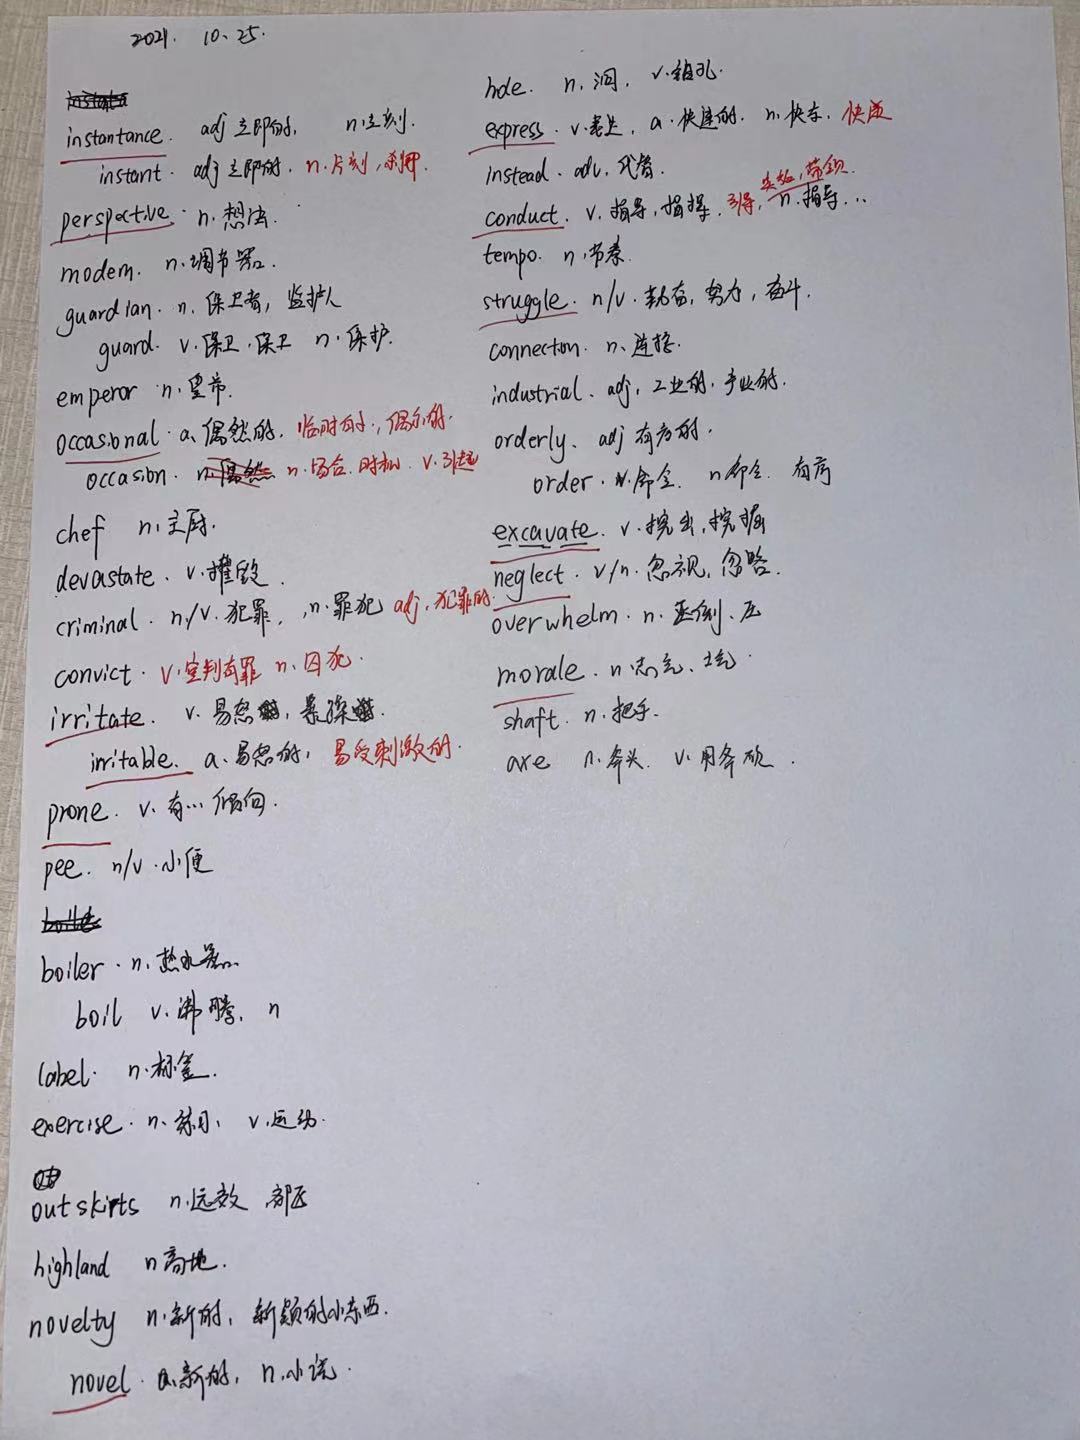 2021. 10. 25.
instantance. adj 立即的, n.立刻.
instant. adj 立即的, n.片刻,
perspective. n.想法.
modem. n.调节器.
guardian. n.保卫者, 监护人
guard. v.保卫.保卫 n.保护.
emperor n.皇帝.
occasional. a.偶然的, 临时的., 偶尔的.
occasion. n.偶然 n.场合.时机. v.引起
chef n.主厨.
devastate. v.摧毁.
criminal. n/v.犯罪, n.罪犯 adj.犯罪的.
convict. v.宣判有罪 n.囚犯.
irritate. v.易怒, 暴躁.
irritable. a.易怒的, 易受刺激的.
prone. v.有…倾向.
pee. n/v.小便
boiler. n.热水器.
boil v.沸腾, n
label. n.标签.
exercise. n.练习, v.运动.
outskirts n.远效 郊区
highland n高地.
novelty n.新的, 新颖的小东西.
novel. a.新的, n.小说.
hole. n.洞, v.钻孔.
express. v.表达, a.快速的, n.快车, 快递
instead. adv.代替.
conduct. v.指导,指挥, 引导, 实施,带领. n.指导...
tempo. n.节奏.
struggle. n/v.勤奋,努力,奋斗.
connection. n.连接.
industrial. adj.工业的.产业的.
orderly. adj有序的.
order. v.命令. n命令. 有序
excavate. v.挖出,挖掘
neglect. v/n.忽视,忽略.
overwhelm. n.压倒.压
morale. n.志气.士气.
shaft. n.把手.
axe n.斧头. v.用斧砍.